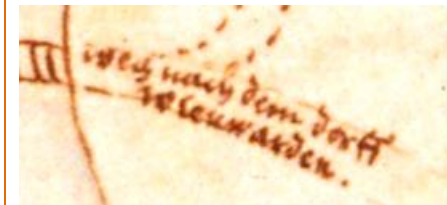 weg nach dem dorff
wlenwarden.